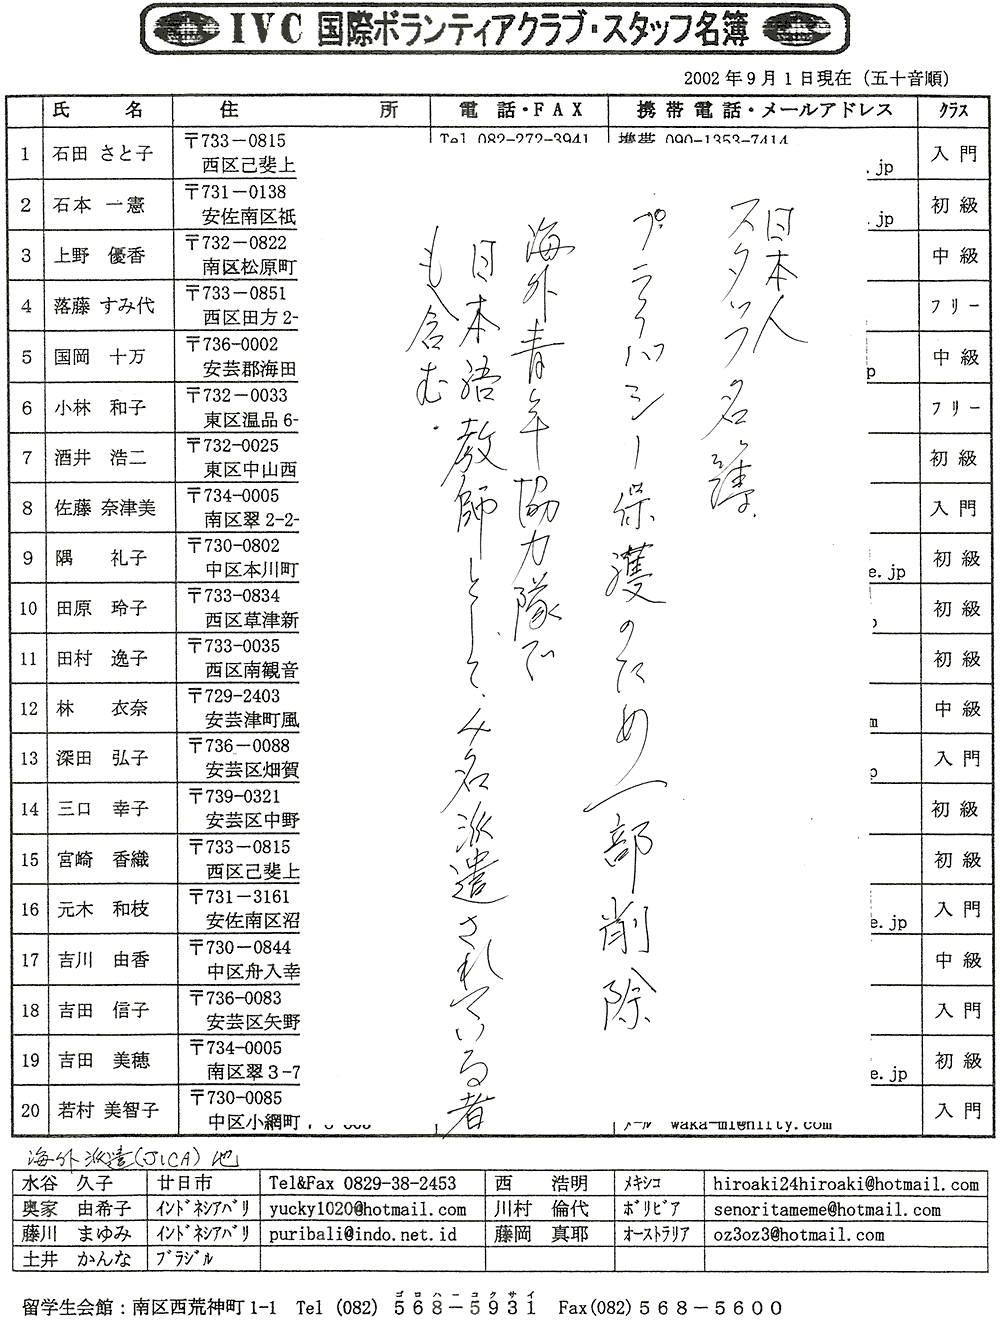 IVC 国際ボランティアクラブ・スタッフ名簿
2002年9月1日現在（五十音順）
氏 名 住 所 電話・FAX 携帯電話・メールアドレス クラス
1 石田 さと子 〒733-0815 Tel 082-272-3941 携帯 090-1353-7414 入門
西区己斐上 .jp
2 石本 一憲 〒731-0138 初級
安佐南区祇 .jp
3 上野 優香 〒732-0822 中級
南区松原町
4 落藤 すみ代 〒733-0851 フリー
西区田方2-
5 国岡 十万 〒736-0002 中級
安芸郡海田 p
6 小林 和子 〒732-0033 フリー
東区温品6-
7 酒井 浩二 〒732-0025 初級
東区中山西
8 佐藤 奈津美 〒734-0005 入門
南区翠2-2-
9 隅 礼子 〒730-0802 初級
中区本川町 e.jp
10 田原 玲子 〒733-0834 初級
西区草津新
11 田村 逸子 〒733-0035 初級
西区南観音
12 林 衣奈 〒729-2403 中級
安芸津町風 m
13 深田 弘子 〒736-0088 入門
安芸区畑賀 p
14 三口 幸子 〒739-0321 初級
安芸区中野
15 宮崎 香織 〒733-0815 初級
西区己斐上
16 元木 和枝 〒731-3161 入門
安佐南区沼 e.jp
17 吉川 由香 〒730-0844 中級
中区舟入幸
18 吉田 信子 〒736-0083 入門
安芸区矢野
19 吉田 美穂 〒734-0005 初級
南区翠3-7 e.jp
20 若村 美智子 〒730-0085 入門
中区小網町 メール waka-mi@nifty.com
日本人
スタッフ名簿.
プライバシー保護のため一部削除
海外青年協力隊で
日本語教師として、み名派遣されている者
も含む.
海外派遣(JICA)地
水谷 久子 廿日市 Tel&Fax 0829-38-2453 西 浩明 メキシコ hiroaki24hiroaki@hotmail.com
奥家 由希子 インドネシアバリ yucky1020@hotmail.com 川村 倫代 ボリビア senoritameme@hotmail.com
藤川 まゆみ インドネシアバリ puribali@indo.net.id 藤岡 真耶 オーストラリア oz3oz3@hotmail.com
土井 かんな ブラジル
ゴロハーコクサイ
留学生会館：南区西荒神町1-1 Tel (082) 568-5931 Fax(082)568-5600